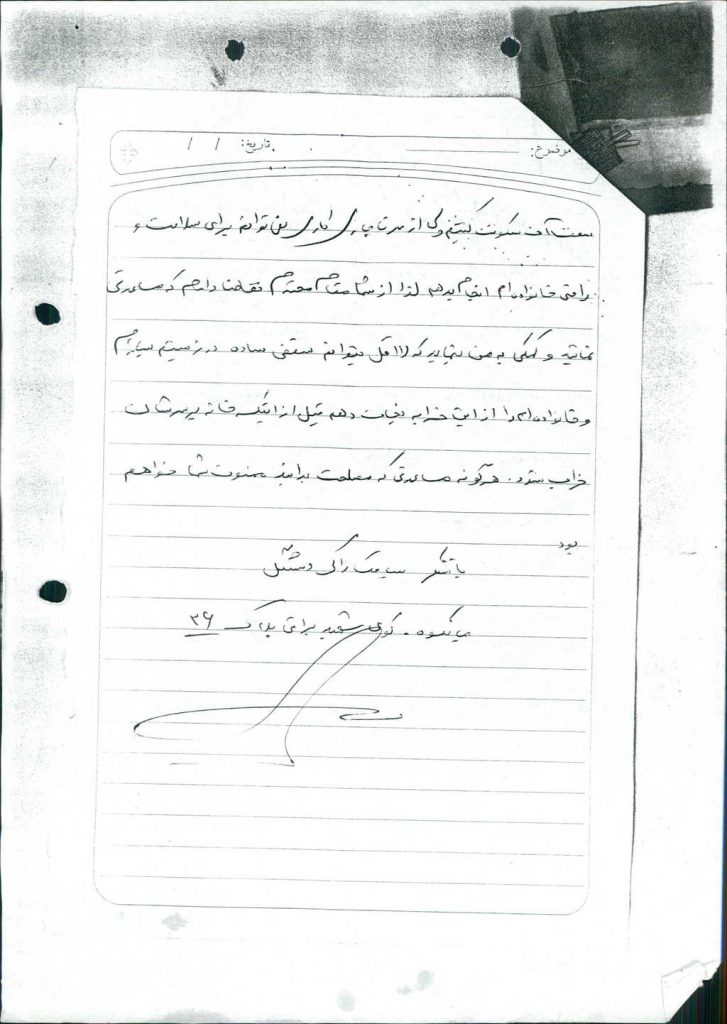 موضوع: تاریخ: / /
سمت آن سکونت کنیم ولی از سر ناچاری کاری نمی توانم برای سلامت و
راحتی خانواده ام انجام بدهم لذا از شما مقام محترم تقاضا دارم که مساعدتی
نمائید و کمکی به من بنمایید که لااقل بتوانم سقفی ساده در زمینم بسازم
و خانواده ام را از این خرابه نجات دهم قبل از اینکه خانه بر سرشان
خراب شود. هرگونه مساعدتی که مصلحت بدانید ممنون شما خواهم
بود
با تشکر سیامک
کوی شهید پلاک ۳۶